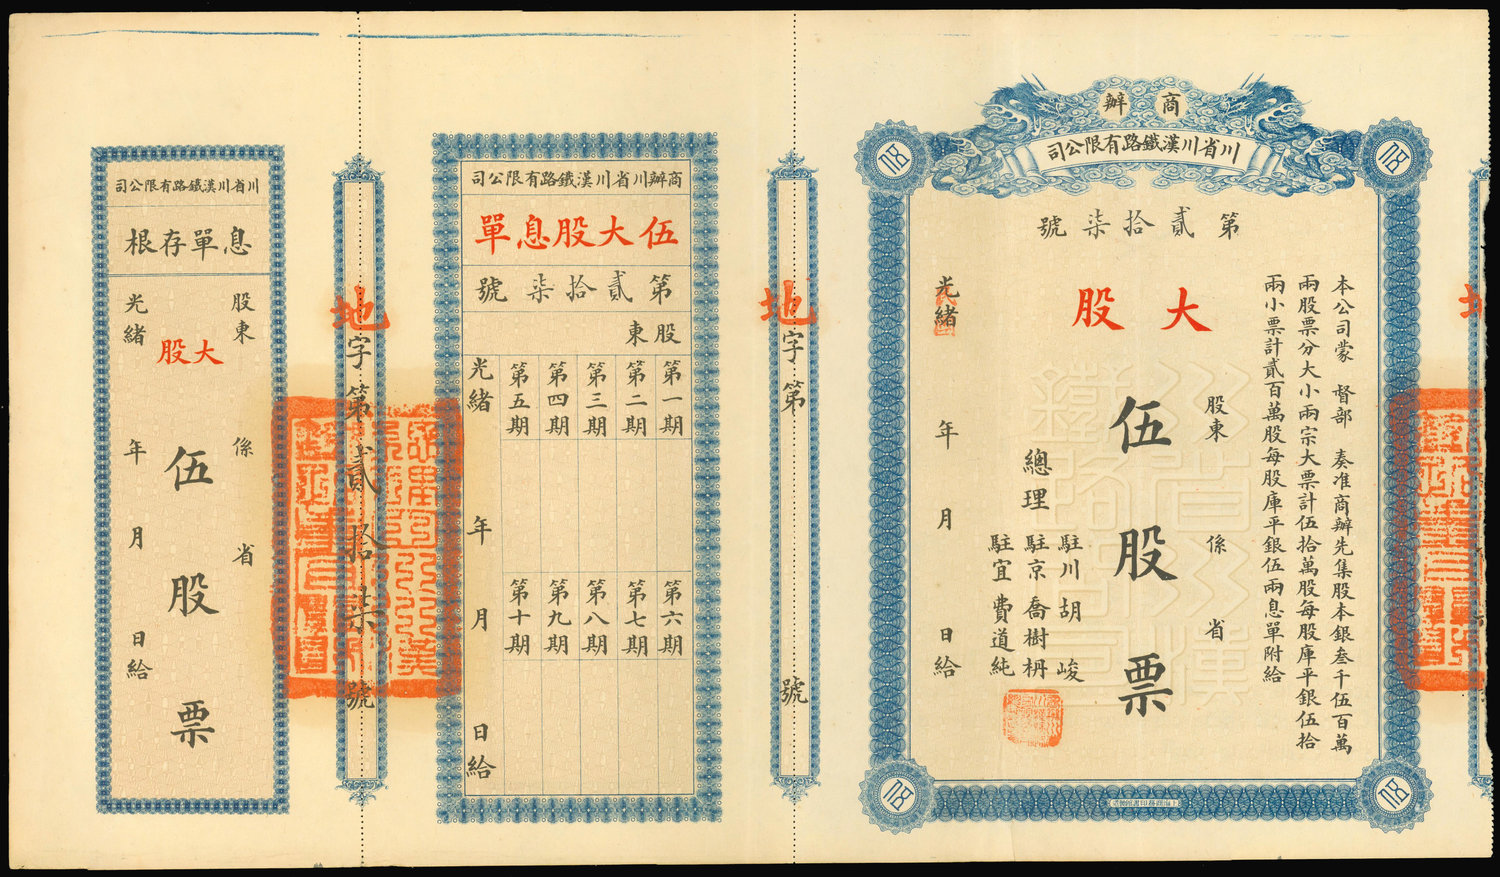 商辦
川省川漢鐵路有限公司
第貳拾柒號
本公司蒙　督部　奏准商辦先集股本銀叁千伍百萬
兩股票分大小兩宗大票計伍拾萬股每股庫平銀伍拾
兩小票計貳百萬股每股庫平銀伍兩息單附給
大股
股東　係　省
伍股票
總理
駐川胡　峻
駐京喬樹枬
駐宜費道純
光緒　年　月　日給
地字第　號
商辦川省川漢鐵路有限公司
伍大股息單
第貳拾柒號
股東
第一期
第二期
第三期
第四期
第五期
第六期
第七期
第八期
第九期
第十期
光緒　年　月　日給
地字第貳拾柒號
川省川漢鐵路有限公司
息單存根
股東　係　省
大股
伍股票
光緒　年　月　日給